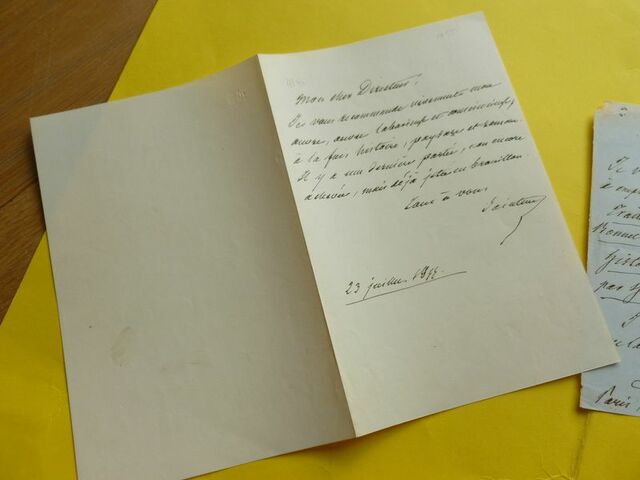 Mon cher Directeur,
Je vous recommande vivement mon
œuvre, œuvre laborieuse et consciencieuse,
à la fois histoire, paysage et roman.
Il y a une dernière partie, non encore
achevée, mais déjà jetée en brouillon.
Tout à vous,
Saintine
23 juillet
Il v
Trait
Bonne
Histo
par
Paris